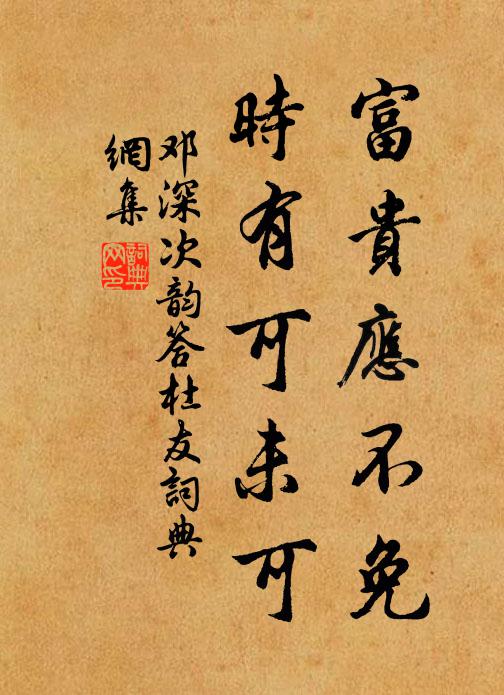 富貴應不免
時有可未可
邓深次韵答杜友詞典
網集
詞典
网印